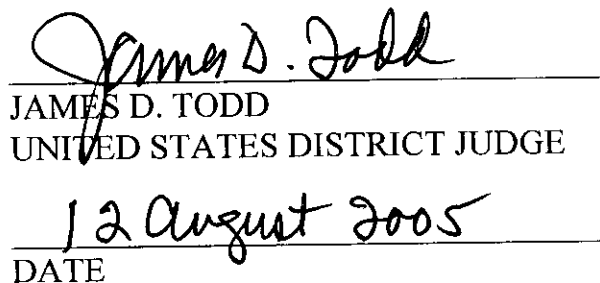 James D. Todd
JAMES D. TODD
UNITED STATES DISTRICT JUDGE
12 August 2005
DATE